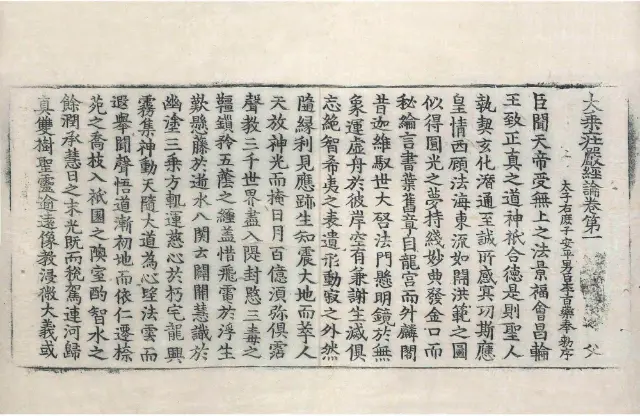 大乘莊嚴經論卷第一 父
太子右庶子安平男百藥奉勅序
臣聞天帝受無上之法景福會昌輪
王致正真之道神祇合德是則聖人
執契玄化潛通至誠所感冥功斯應
皇情西顧法海東流如開洪範之圖
似得圓光之夢持綫妙典發金口而
秘綸言書葉舊章自龍宮而外麟閣
昔迦維馭世大啓法門懸明鏡於無
象運虛舟於彼岸空有兼謝生滅俱
忘絶智希夷之表遺形動寂之外然
隨緣利見應跡生知震大地而萃人
天放神光而掩日月百億須弥俱霑
聲教三千世界盡入隄封愍三毒之
韁鎖矜五蔭之纏蓋惜飛電於浮生
歎懸藤於逝水八關云闢開慧識於
幽塗三乘方軌運慈心於朽宅龍興
霧集神動天隨大道為心墜法雲而
遐舉聞聲悟道漸初地而依仁遷榛
苑之喬枝入祇園之隩室酌智水之
餘潤承慧日之末光既而稅駕連河歸
真雙樹聖靈逾遠像教浸微大義或